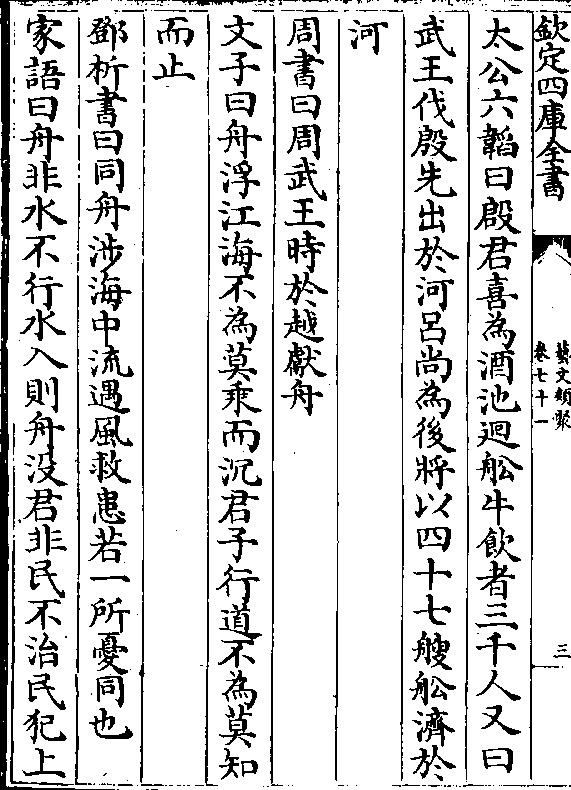 欽定四庫全書
藝文類聚
卷七十一
三
太公六韜曰殷君喜為酒池迴舩牛飲者三千人又曰
武王伐殷先出於河呂尚為後將以四十七艘舩濟於
河
周書曰周武王時於越獻舟
文子曰舟浮江海不為莫乘而沉君子行道不為莫知
而止
鄧析書曰同舟涉海中流遇風救患若一所憂同也
家語曰舟非水不行水入則舟没君非民不治民犯上